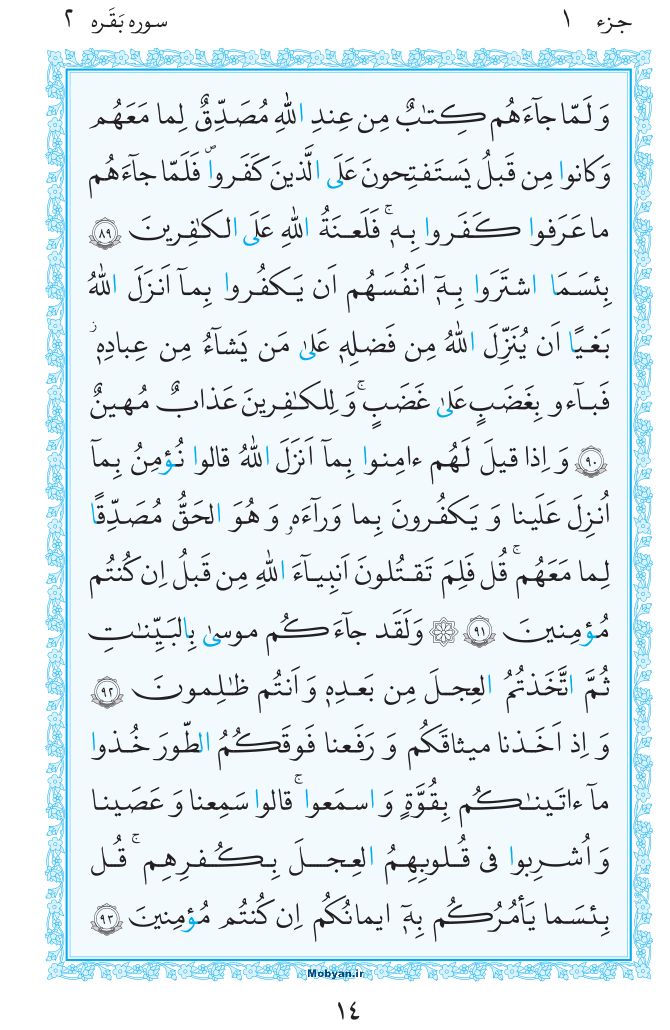 جزء ١ سوره بَقَره ٢
وَ لَمّا جآءَهُم كِتٰبٌ مِن عِندِ اللهِ مُصَدِّقٌ لِما مَعَهُم
وَ كانوا مِن قَبلُ يَستَفتِحونَ عَلَى الَّذينَ كَفَروا فَلَمّا جآءَهُم
ما عَرَفوا كَفَروا بِهٖ ۚ فَلَعنَةُ اللهِ عَلَى الكٰفِرينَ ﴿٨٩﴾
بِئسَمَا اشتَرَوا بِهٖٓ اَنفُسَهُم اَن يَكفُروا بِمآ اَنزَلَ اللهُ
بَغيًا اَن يُنَزِّلَ اللهُ مِن فَضلِهٖ عَلىٰ مَن يَشآءُ مِن عِبادِهٖ ۖ
فَبآءو بِغَضَبٍ عَلىٰ غَضَبٍ ۚ وَ لِلكٰفِرينَ عَذابٌ مُهينٌ
﴿٩٠﴾ وَ اِذا قيلَ لَهُم ءامِنوا بِمآ اَنزَلَ اللهُ قالوا نُؤمِنُ بِمآ
اُنزِلَ عَلَينا وَ يَكفُرونَ بِما وَرآءَهٗ وَ هُوَ الحَقُّ مُصَدِّقًا
لِما مَعَهُم ۗ قُل فَلِمَ تَقتُلونَ اَنبِيآءَ اللهِ مِن قَبلُ اِن كُنتُم
مُؤمِنينَ ﴿٩١﴾ ۞ وَ لَقَد جآءَكُم موسىٰ بِالبَيِّنٰتِ
ثُمَّ اتَّخَذتُمُ العِجلَ مِن بَعدِهٖ وَ اَنتُم ظٰلِمونَ ﴿٩٢﴾
وَ اِذ اَخَذنا ميثاقَكُم وَ رَفَعنا فَوقَكُمُ الطّورَ خُذوا
مآ ءاتَينٰكُم بِقُوَّةٍ وَ اسمَعوا ۖ قالوا سَمِعنا وَ عَصَينا
وَ اُشرِبوا فى قُلوبِهِمُ العِجلَ بِكُفرِهِم ۚ قُل
بِئسَما يَأمُرُكُم بِهٖٓ ايمانُكُم اِن كُنتُم مُؤمِنينَ ﴿٩٣﴾
Mobyan.ir
١٤